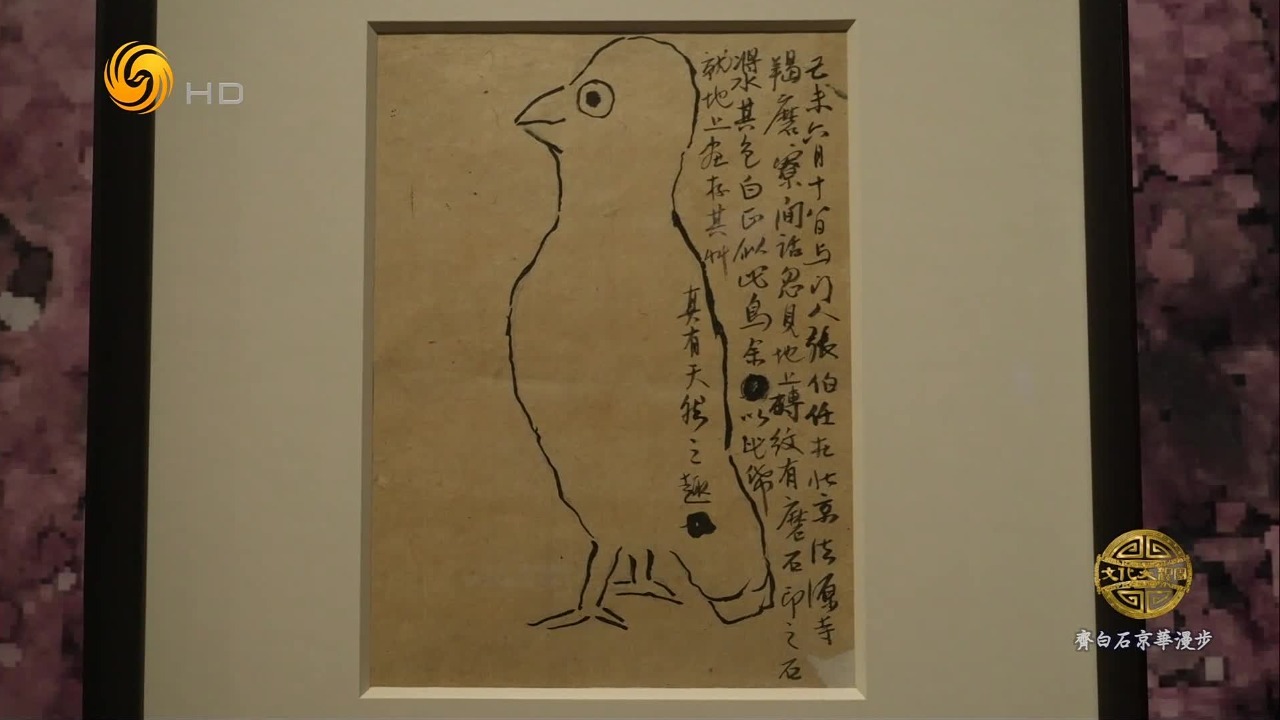 HD
己未六月十八日与门人張伯任在北京法源寺
羯磨寮闲话忽見地上磚紋有磨石印之石
漿水其色白正似此鳥余以此紙
就地上画存其艸
真有天然之趣
文化大觀園
齊白石京華漫步